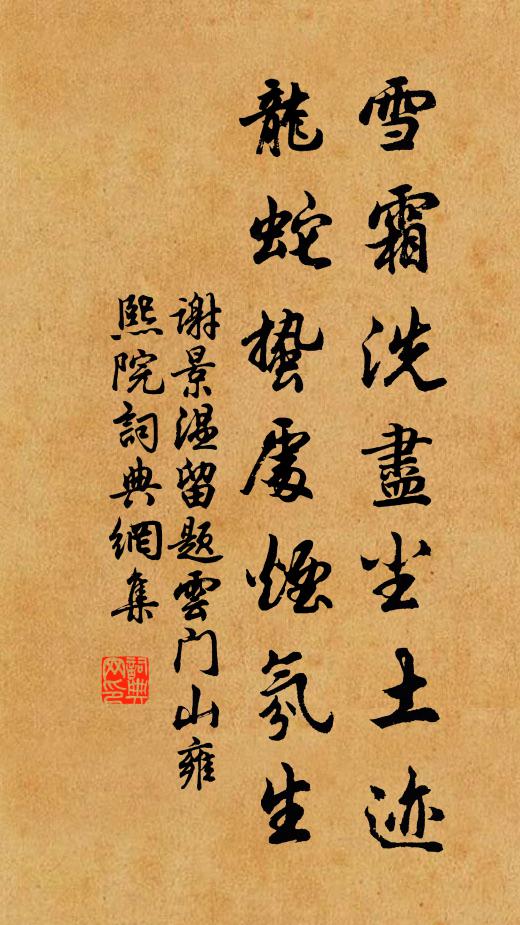 雪霜洗盡尘土迹
龍蛇蛰處煙氛生
谢景温留题雲门山雍
熙院詞典網集
詞典
网印